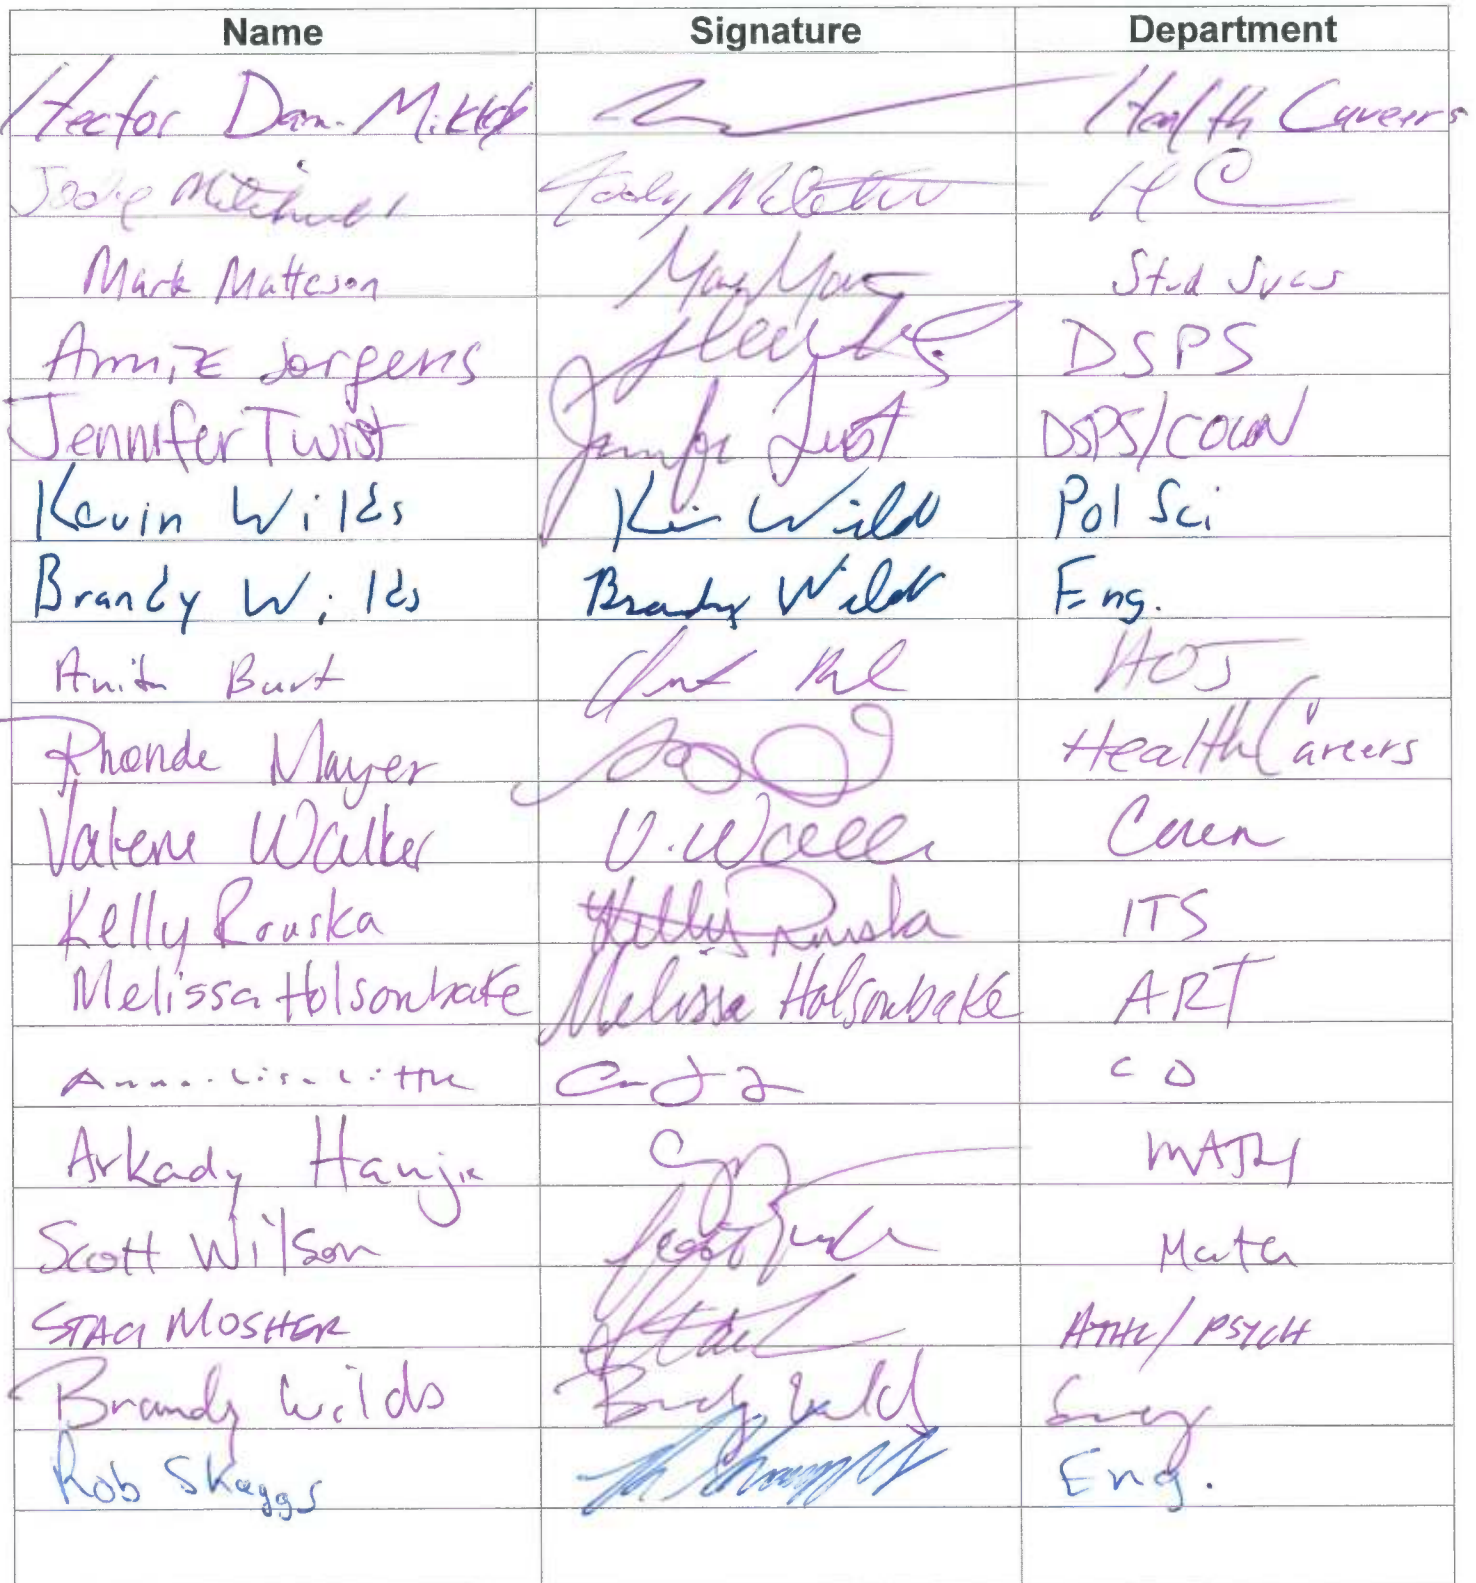 Name Signature Department
Hector Health Careers
HC
Mark Matteson Stud Svcs
Jorgens DSPS
Jennifer Twist Jennifer Twist DSPS/COUN
Kevin Wilds Kevin Wilds Pol Sci
Brandy Wilds Brandy Wilds Eng.
Anita Burt AOJ
Rhonda Mayer Health Careers
Valerie Walker V. Walker Coun
Kelly Rouska Kelly Rouska ITS
Melissa Holsonbake Melissa Holsonbake ART
Anna-Lisa Little CD
Arkady Hanjiev MATH
Scott Wilson Math
STACI MOSHER Staci ATHL/PSYCH
Brandy Wilds Brandy Wilds
Rob Skaggs Eng.